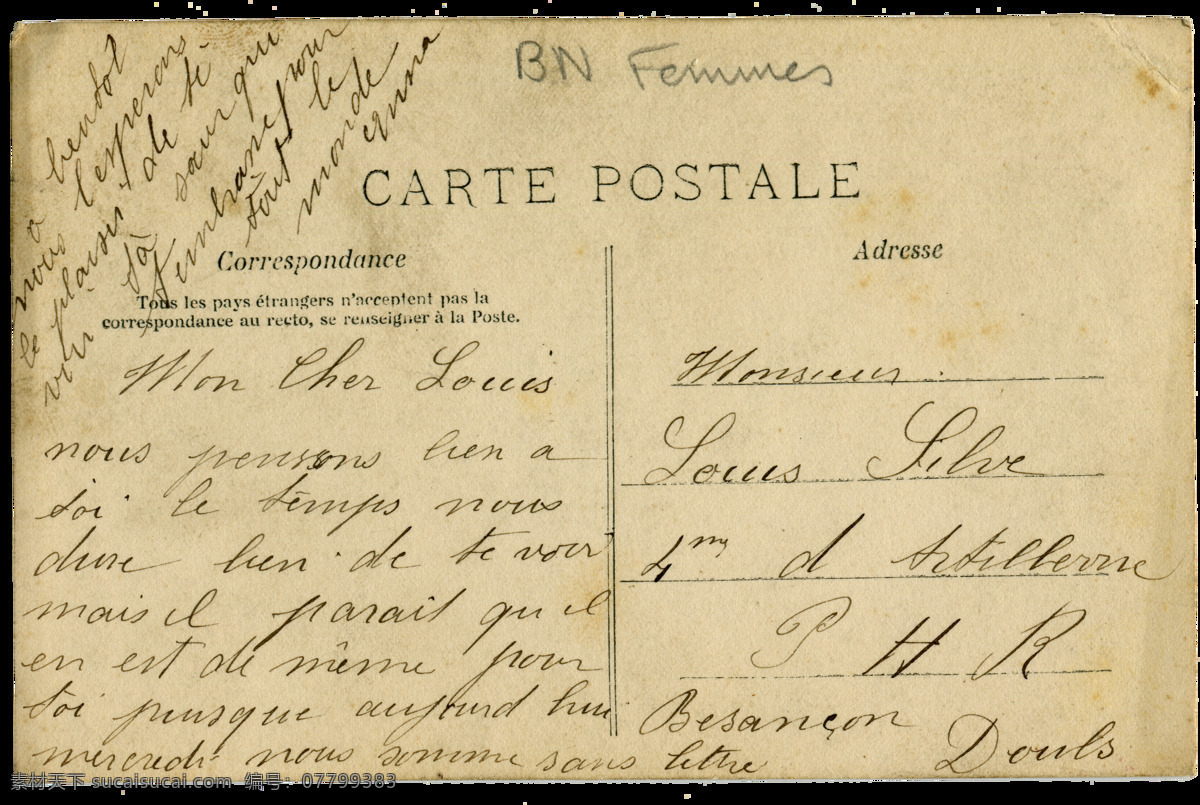 BN Femmes
CARTE POSTALE
Correspondance
Tous les pays étrangers n'acceptent pas la
correspondance au recto, se renseigner à la Poste.
Adresse
Mon Cher Louis
nous pensons bien a
toi le temps nous
dure bien de te voir
mais il parait qu il
en est de même pour
toi puisque aujourd hui
mercredi nous somme sans lettre
a bentot
nous l'esperons
le plaisir de te
voir
ta sœur qui
t'embrasse pour
tout le
monde
Monsieur
Louis Silve
4me d Artillerie
P H R
Besançon
Doubs
素材天下 sucaisucai.com 编号：07799383